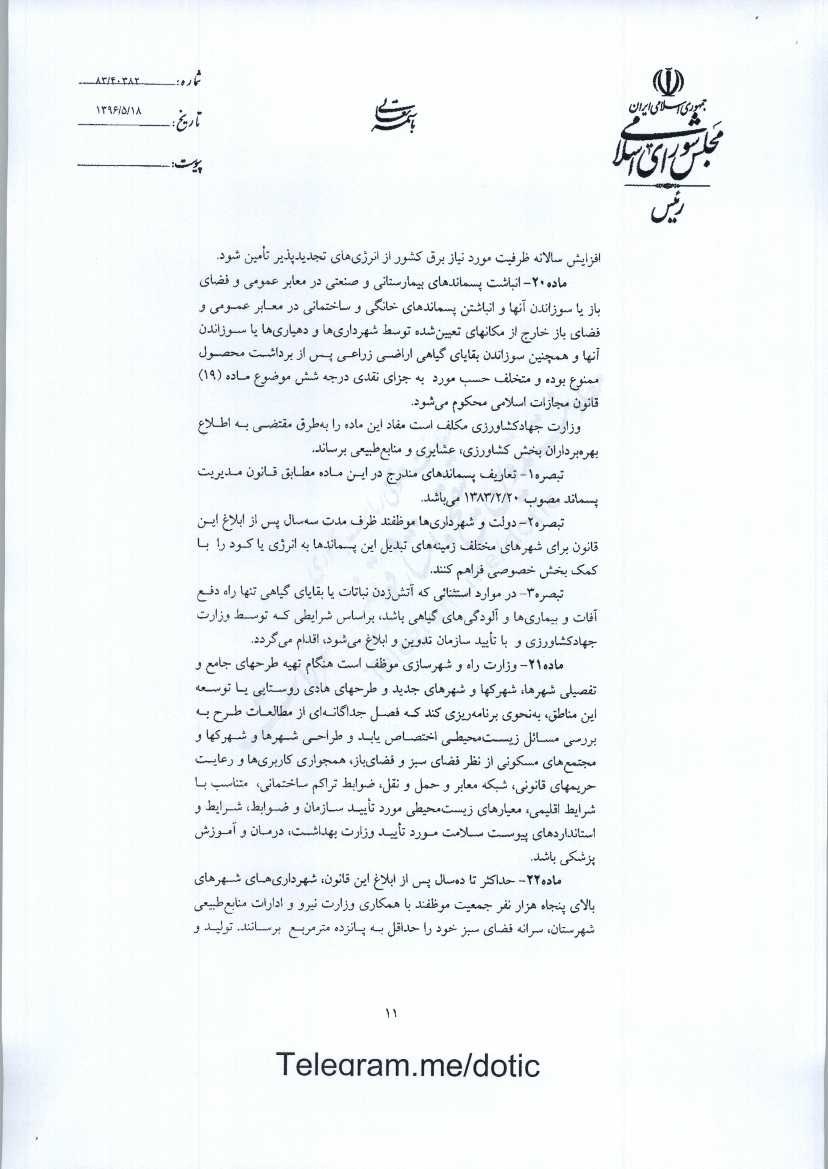 جمهوری اسلامی ایران
مجلس شورای اسلامی
رئیس
باسمه تعالی
شماره: ۸۳/۴۰۳۸۲
تاریخ: ۱۳۹۶/۵/۱۸
پیوست:
افزایش سالانه ظرفیت مورد نیاز برق کشور از انرژی‌های تجدیدپذیر تأمین شود.
ماده۲۰- انباشت پسماندهای بیمارستانی و صنعتی در معابر عمومی و فضای
باز یا سوزاندن آنها و انباشتن پسماندهای خانگی و ساختمانی در معابر عمومی و
فضای باز خارج از مکانهای تعیین‌شده توسط شهرداری‌ها و دهیاری‌ها یا سوزاندن
آنها و همچنین سوزاندن بقایای گیاهی اراضی زراعی پس از برداشت محصول
ممنوع بوده و متخلف حسب مورد به جزای نقدی درجه شش موضوع ماده (۱۹)
قانون مجازات اسلامی محکوم می‌شود.
وزارت جهادکشاورزی مکلف است مفاد این ماده را به‌طرق مقتضی به اطلاع
بهره‌برداران بخش کشاورزی، عشایری و منابع‌طبیعی برساند.
تبصره۱- تعاریف پسماندهای مندرج در این ماده مطابق قانون مدیریت
پسماند مصوب ۱۳۸۳/۲/۲۰ می‌باشد.
تبصره۲- دولت و شهرداری‌ها موظفند ظرف مدت سه‌سال پس از ابلاغ این
قانون برای شهرهای مختلف زمینه‌های تبدیل این پسماندها به انرژی یا کود را با
کمک بخش خصوصی فراهم کنند.
تبصره۳- در موارد استثنائی که آتش‌زدن نباتات یا بقایای گیاهی تنها راه دفع
آفات و بیماری‌ها و آلودگی‌های گیاهی باشد، براساس شرایطی که توسط وزارت
جهادکشاورزی و با تأیید سازمان تدوین و ابلاغ می‌شود، اقدام می‌گردد.
ماده۲۱- وزارت راه و شهرسازی موظف است هنگام تهیه طرحهای جامع و
تفصیلی شهرها، شهرکها و شهرهای جدید و طرحهای هادی روستایی یا توسعه
این مناطق، به‌نحوی برنامه‌ریزی کند که فصل جداگانه‌ای از مطالعات طرح به
بررسی مسائل زیست‌محیطی اختصاص یابد و طراحی شهرها و شهرکها و
مجتمع‌های مسکونی از نظر فضای سبز و فضای‌باز، همجواری کاربری‌ها و رعایت
حریمهای قانونی، شبکه معابر و حمل و نقل، ضوابط تراکم ساختمانی، متناسب با
شرایط اقلیمی، معیارهای زیست‌محیطی مورد تأیید سازمان و ضوابط، شرایط و
استانداردهای پیوست سلامت مورد تأیید وزارت بهداشت، درمان و آموزش
پزشکی باشد.
ماده۲۲- حداکثر تا ده‌سال پس از ابلاغ این قانون، شهرداری‌های شهرهای
بالای پنجاه هزار نفر جمعیت موظفند با همکاری وزارت نیرو و ادارات منابع‌طبیعی
شهرستان، سرانه فضای سبز خود را حداقل به پانزده مترمربع برسانند. تولید و
۱۱
Telegram.me/dotic